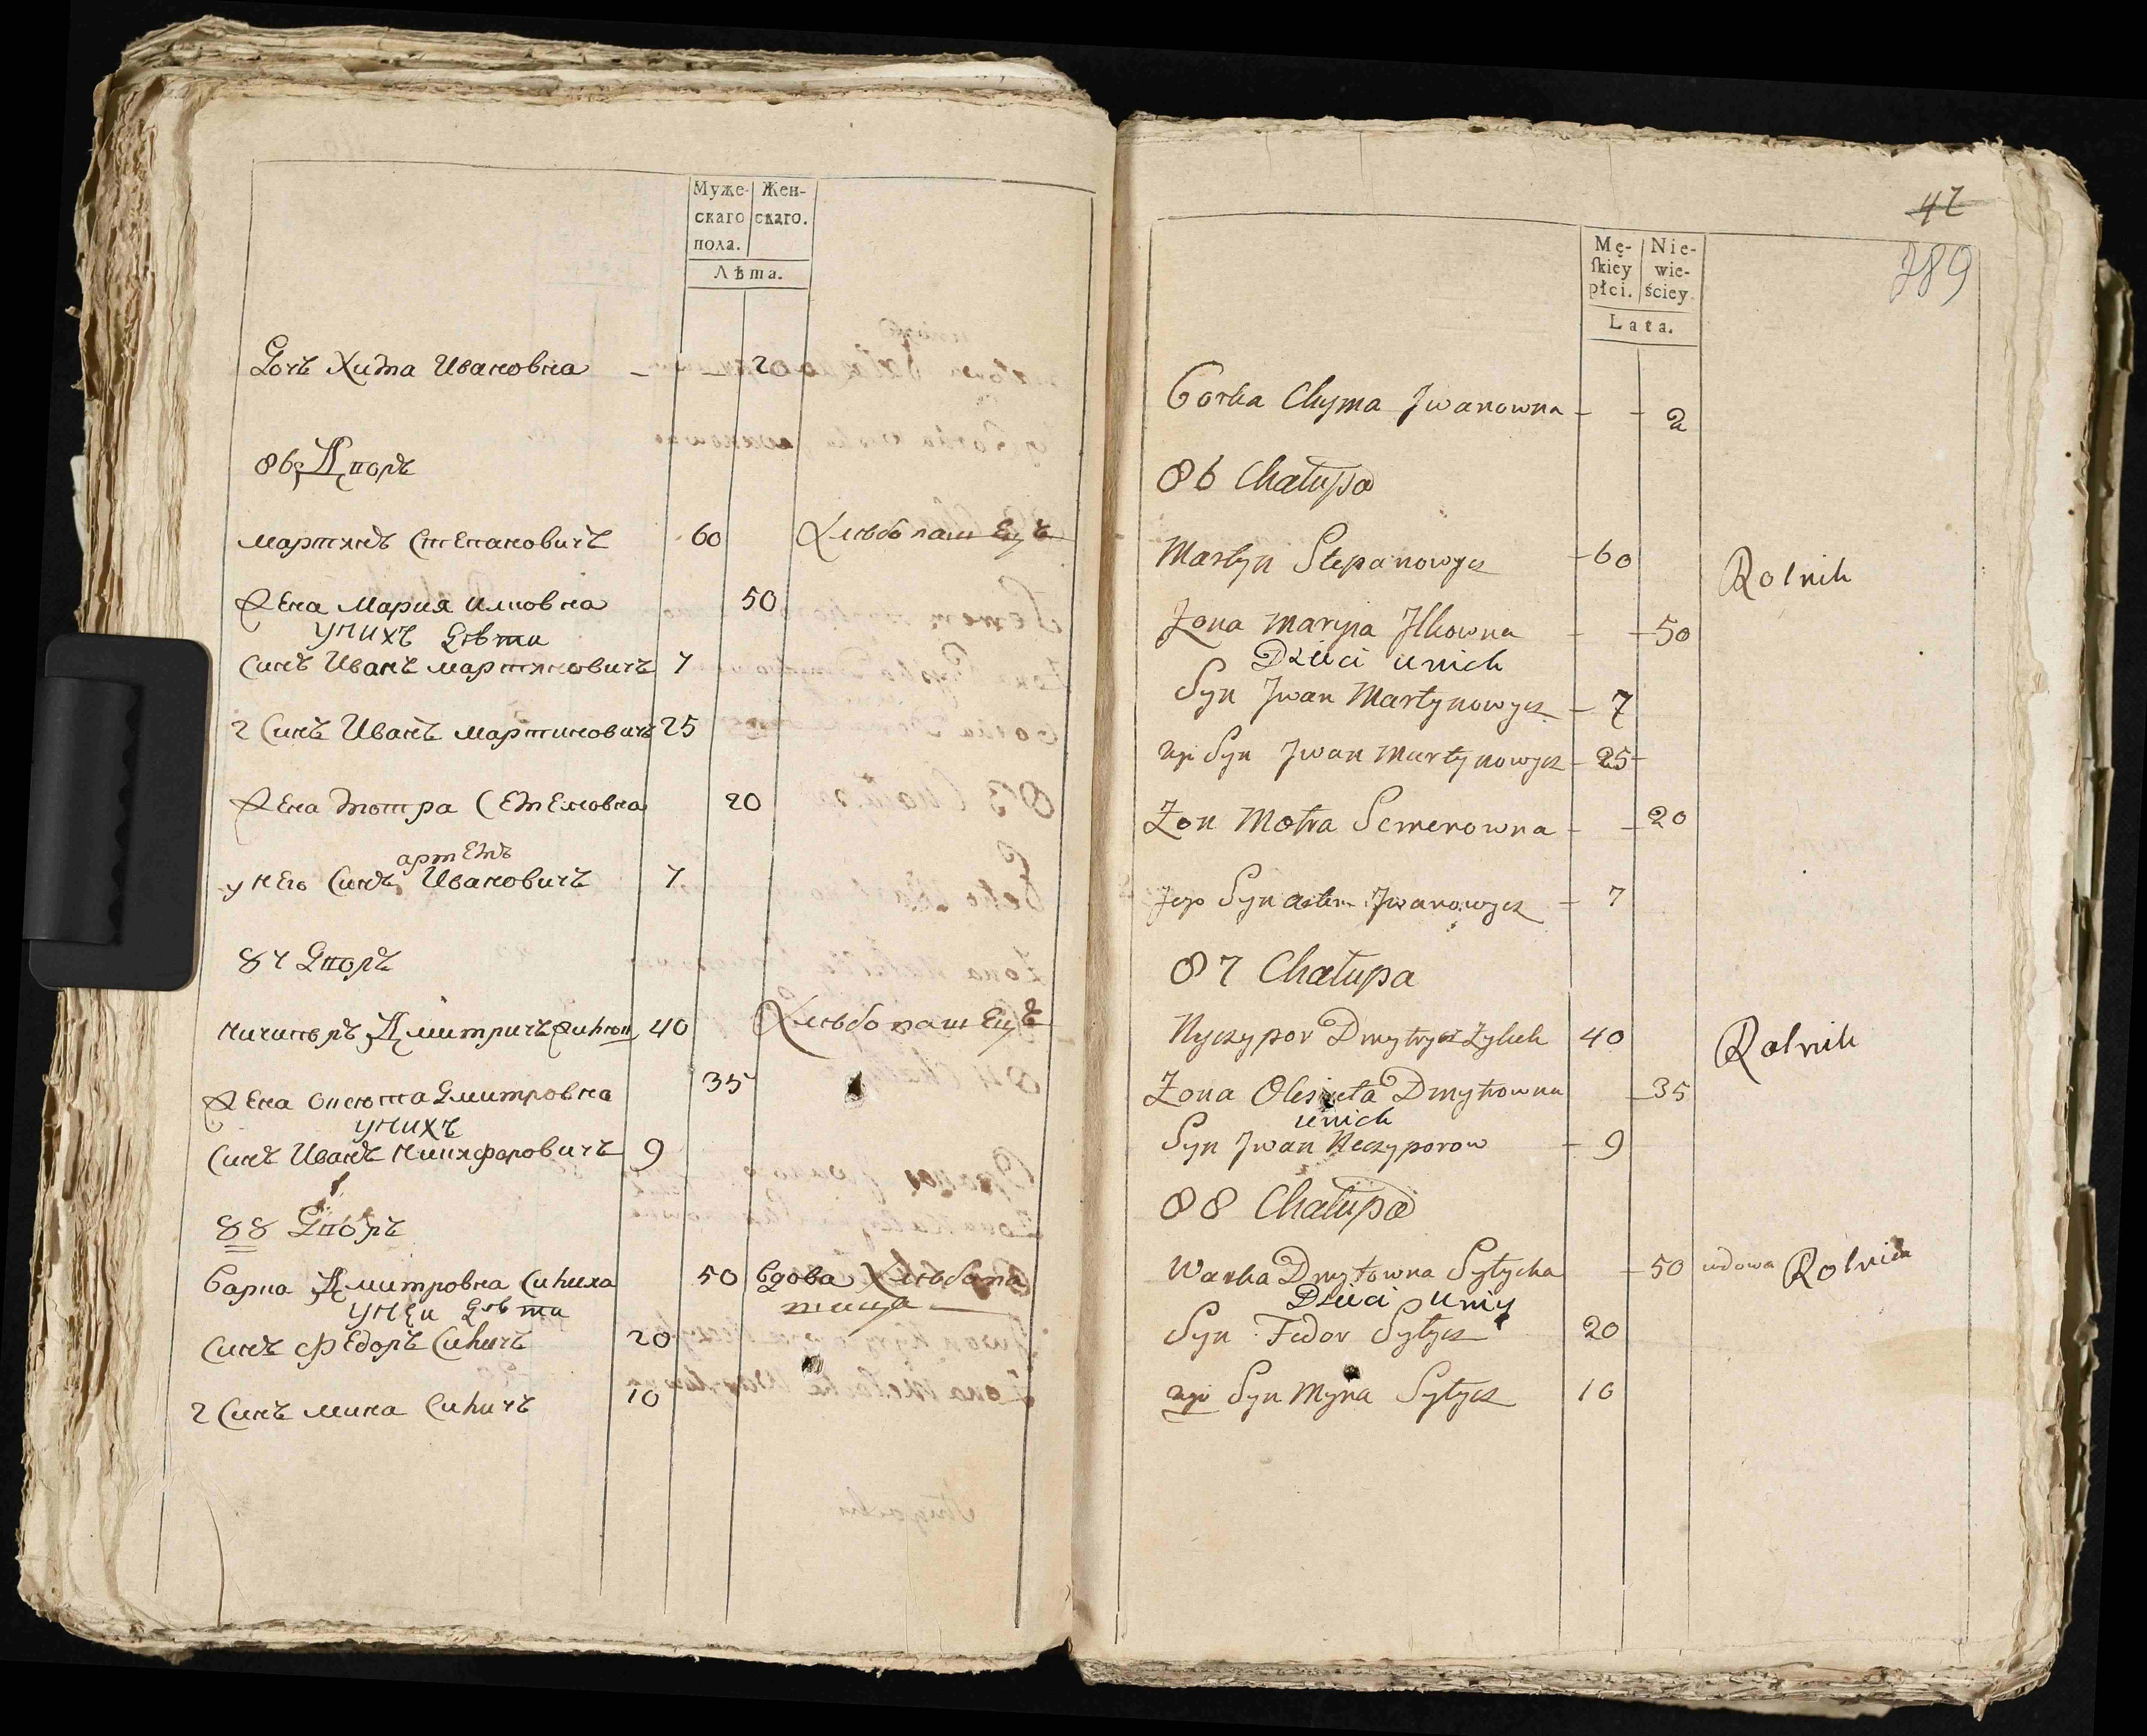 Муже- Жен-
скаго скаго.
пола.
Лѣта.
Дочъ Хима Ивановна — — 2
86 Дворъ
Мартинъ Степановичъ 60 Хлѣбопашецъ
Жена Мария Илковна 50
унихъ дѣти
Синъ Иванъ Мартиновичъ 7
2 Синъ Иванъ Мартиновичъ 25
Жена Мотра Семеновна 20
унего Синъ Артемъ Ивановичъ 7
87 Дворъ
Ничипоръ Дмитричъ 40 Хлѣбопашецъ
Жена Олсюта Дмитровна 35
унихъ
Синъ Иванъ Ничипоровичъ 9
88 Дворъ
Варка Дмитровна Ситиха 50 Вдова Хлѣбопа
шица
унеи дѣти
Синъ Федоръ Ситичъ 20
2 Синъ Мина Ситичъ 10
42
789
Mę- Nie-
ſkiey wie-
płci. ściey.
Lata.
Corka Chyma Jwanowna - - 2
86 Chałupa
Martyn Stepanowycz - 60 Rolnik
Żona Maryia Jlkowna - - 50
Dzieci unich
Syn Jwan Martynowycz - 7
2gi Syn Jwan Martynowycz - 25 -
Żon Motra Semenowna - - 20
Jego Syn Artem Jwanowycz - 7
87 Chałupa
Nyczypor Dmytrycz 40 Rolnik
Żona Olesiuta Dmytrowna - 35
unich
Syn Jwan Neczyporow - 9
88 Chałupa
Warka Dmytrowna Sytycha - 50 wdowa Rolnica
Dzieci uniy
Syn Fedor Sytycz 20
2gi Syn Myna Sytycz 10